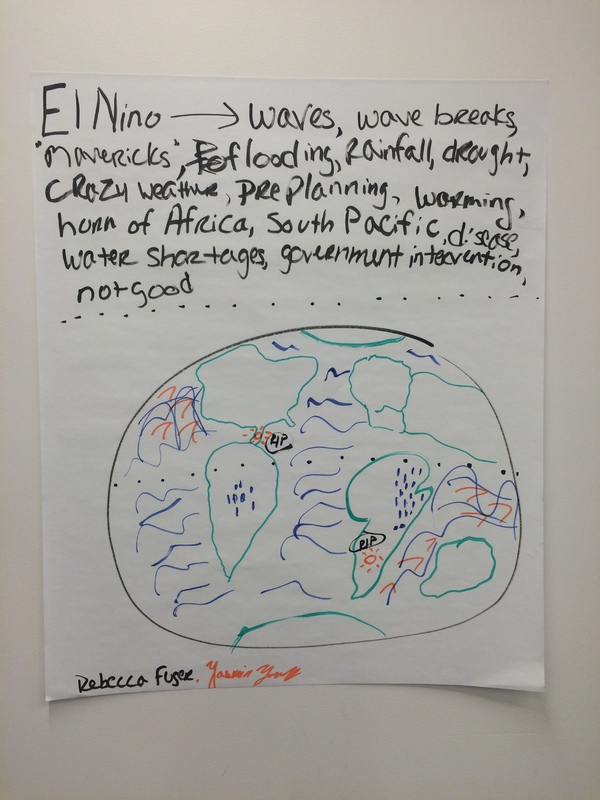 El Nino → waves, wave breaks,
"Mavericks", flooding, Rainfall, drought,
CRAZY weather, pre planning, warming,
horn of Africa, South Pacific, disease,
water shortages, government intervention,
not good
RIP
RIP
Rebecca Fuser. Yasmin